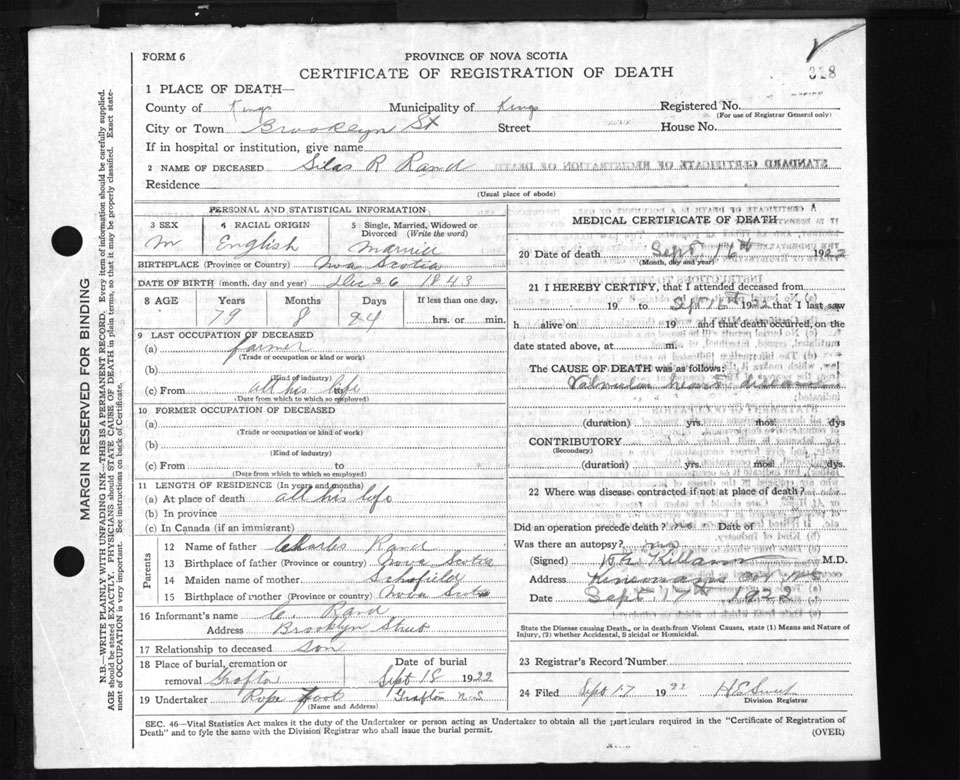 FORM 6
PROVINCE OF NOVA SCOTIA
CERTIFICATE OF REGISTRATION OF DEATH
328
1 PLACE OF DEATH—
County of Kings Municipality of Kings Registered No.
(For use of Registrar General only)
City or Town Brooklyn St Street House No.
If in hospital or institution, give name
2 NAME OF DECEASED Silas R Rand
Residence
(Usual place of abode)
PERSONAL AND STATISTICAL INFORMATION
3 SEX 4 RACIAL ORIGIN 5 Single, Married, Widowed or Divorced (Write the word)
m English Married
BIRTHPLACE (Province or Country) Nova Scotia
DATE OF BIRTH (month, day and year) Dec 26 1843
8 AGE Years Months Days If less than one day,
79 8 24 hrs. or min.
9 LAST OCCUPATION OF DECEASED
(a) farmer
(Trade or occupation or kind of work)
(b)
(Kind of industry)
(c) From all his life to
(Date from which to which so employed)
10 FORMER OCCUPATION OF DECEASED
(a)
(Trade or occupation or kind of work)
(b)
(Kind of industry)
(c) From to
(Date from which to which so employed)
11 LENGTH OF RESIDENCE (In years and months)
(a) At place of death all his life
(b) In province
(c) In Canada (if an immigrant)
Parents
12 Name of father Charles Rand
13 Birthplace of father (Province or country) Nova Scotia
14 Maiden name of mother Schofield
15 Birthplace of mother (Province or country) Nova Scotia
16 Informant's name C. Rand
Address Brooklyn Street
17 Relationship to deceased son
18 Place of burial, cremation or removal Grafton Date of burial Sept 18 1922
19 Undertaker Grafton N.S
(Name and Address)
MEDICAL CERTIFICATE OF DEATH
20 Date of death Sept 16th 1922
(Month, day and year)
21 I HEREBY CERTIFY, that I attended deceased from
19 to Sept 16th 1922 that I last saw
h alive on 19 and that death occurred, on the
date stated above, at m.
The CAUSE OF DEATH was as follows:
Valvular heart disease
(duration) yrs. mos. dys
CONTRIBUTORY
(Secondary)
(duration) yrs. mos. dys
22 Where was disease contracted if not at place of death?
Did an operation precede death? no Date of
Was there an autopsy? no
(Signed) Killam M.D.
Address N.S
Date Sept 17th 1922
State the Disease causing Death, or in death from Violent Causes, state (1) Means and Nature of
Injury, (2) whether Accidental, Suicidal or Homicidal.
23 Registrar's Record Number
24 Filed Sept 17 19
Division Registrar
SEC. 46—Vital Statistics Act makes it the duty of the Undertaker or person acting as Undertaker to obtain all the particulars required in the "Certificate of Registration of
Death" and to fyle the same with the Division Registrar who shall issue the burial permit.
(OVER)
MARGIN RESERVED FOR BINDING
N.B.—WRITE PLAINLY WITH UNFADING INK—THIS IS A PERMANENT RECORD. Every item of information should be carefully supplied.
AGE should be stated EXACTLY. PHYSICIANS should STATE CAUSE OF DEATH in plain terms, so that it may be properly classified. Exact state-
ment of OCCUPATION is very important. See instructions on back of Certificate.